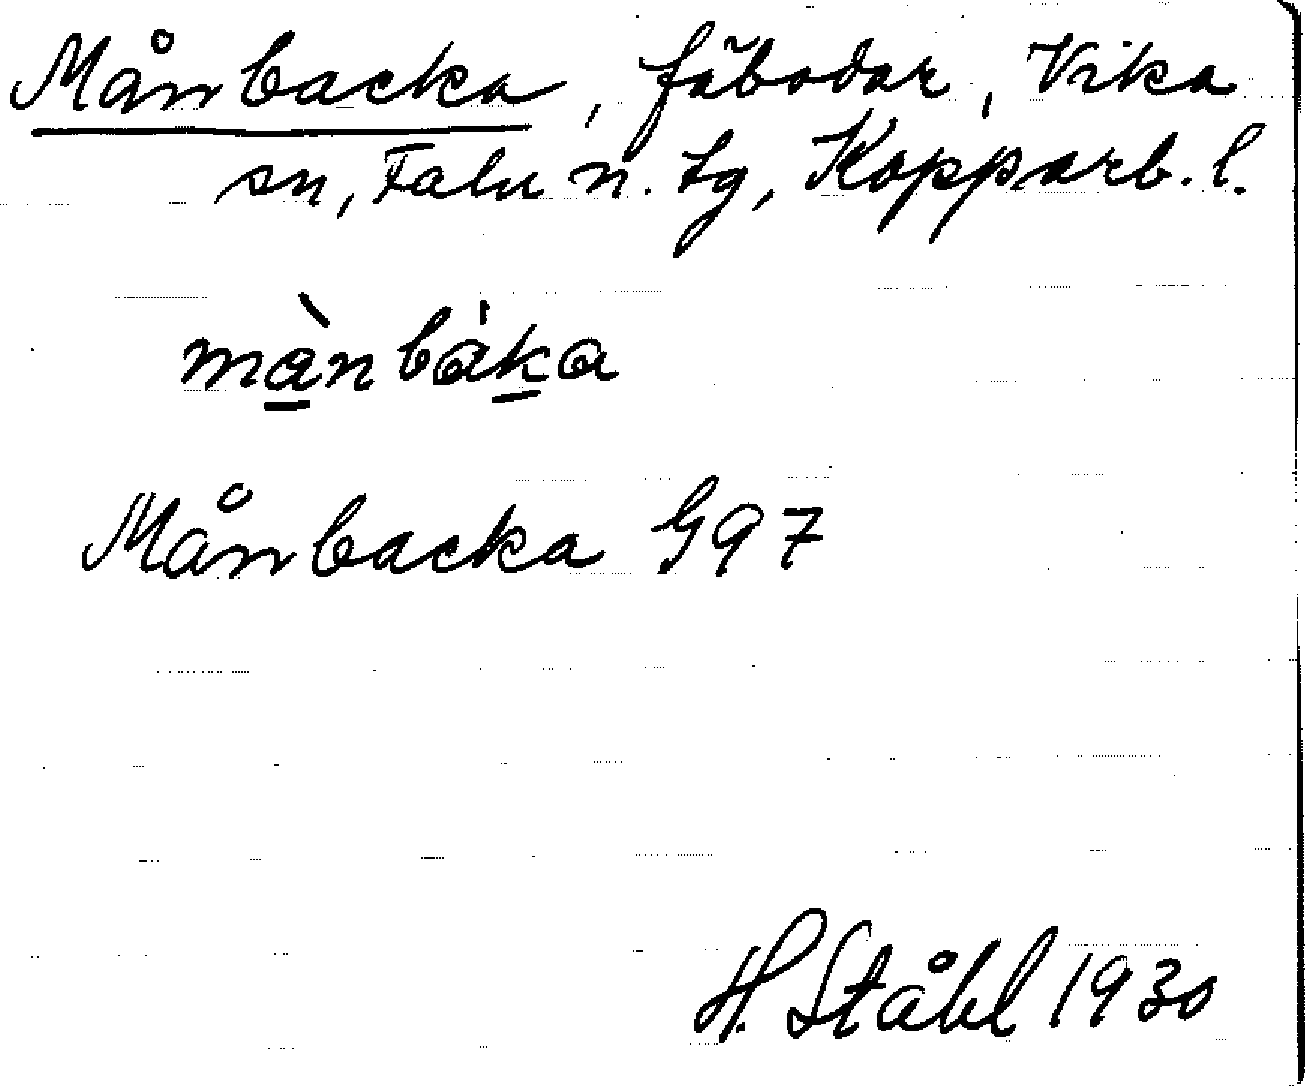 Månbacka, fäbodar, Vika
sn, Falu n. tg, Kopparb. l.
mànbáka
Månbacka G97
H. Ståhl 1930